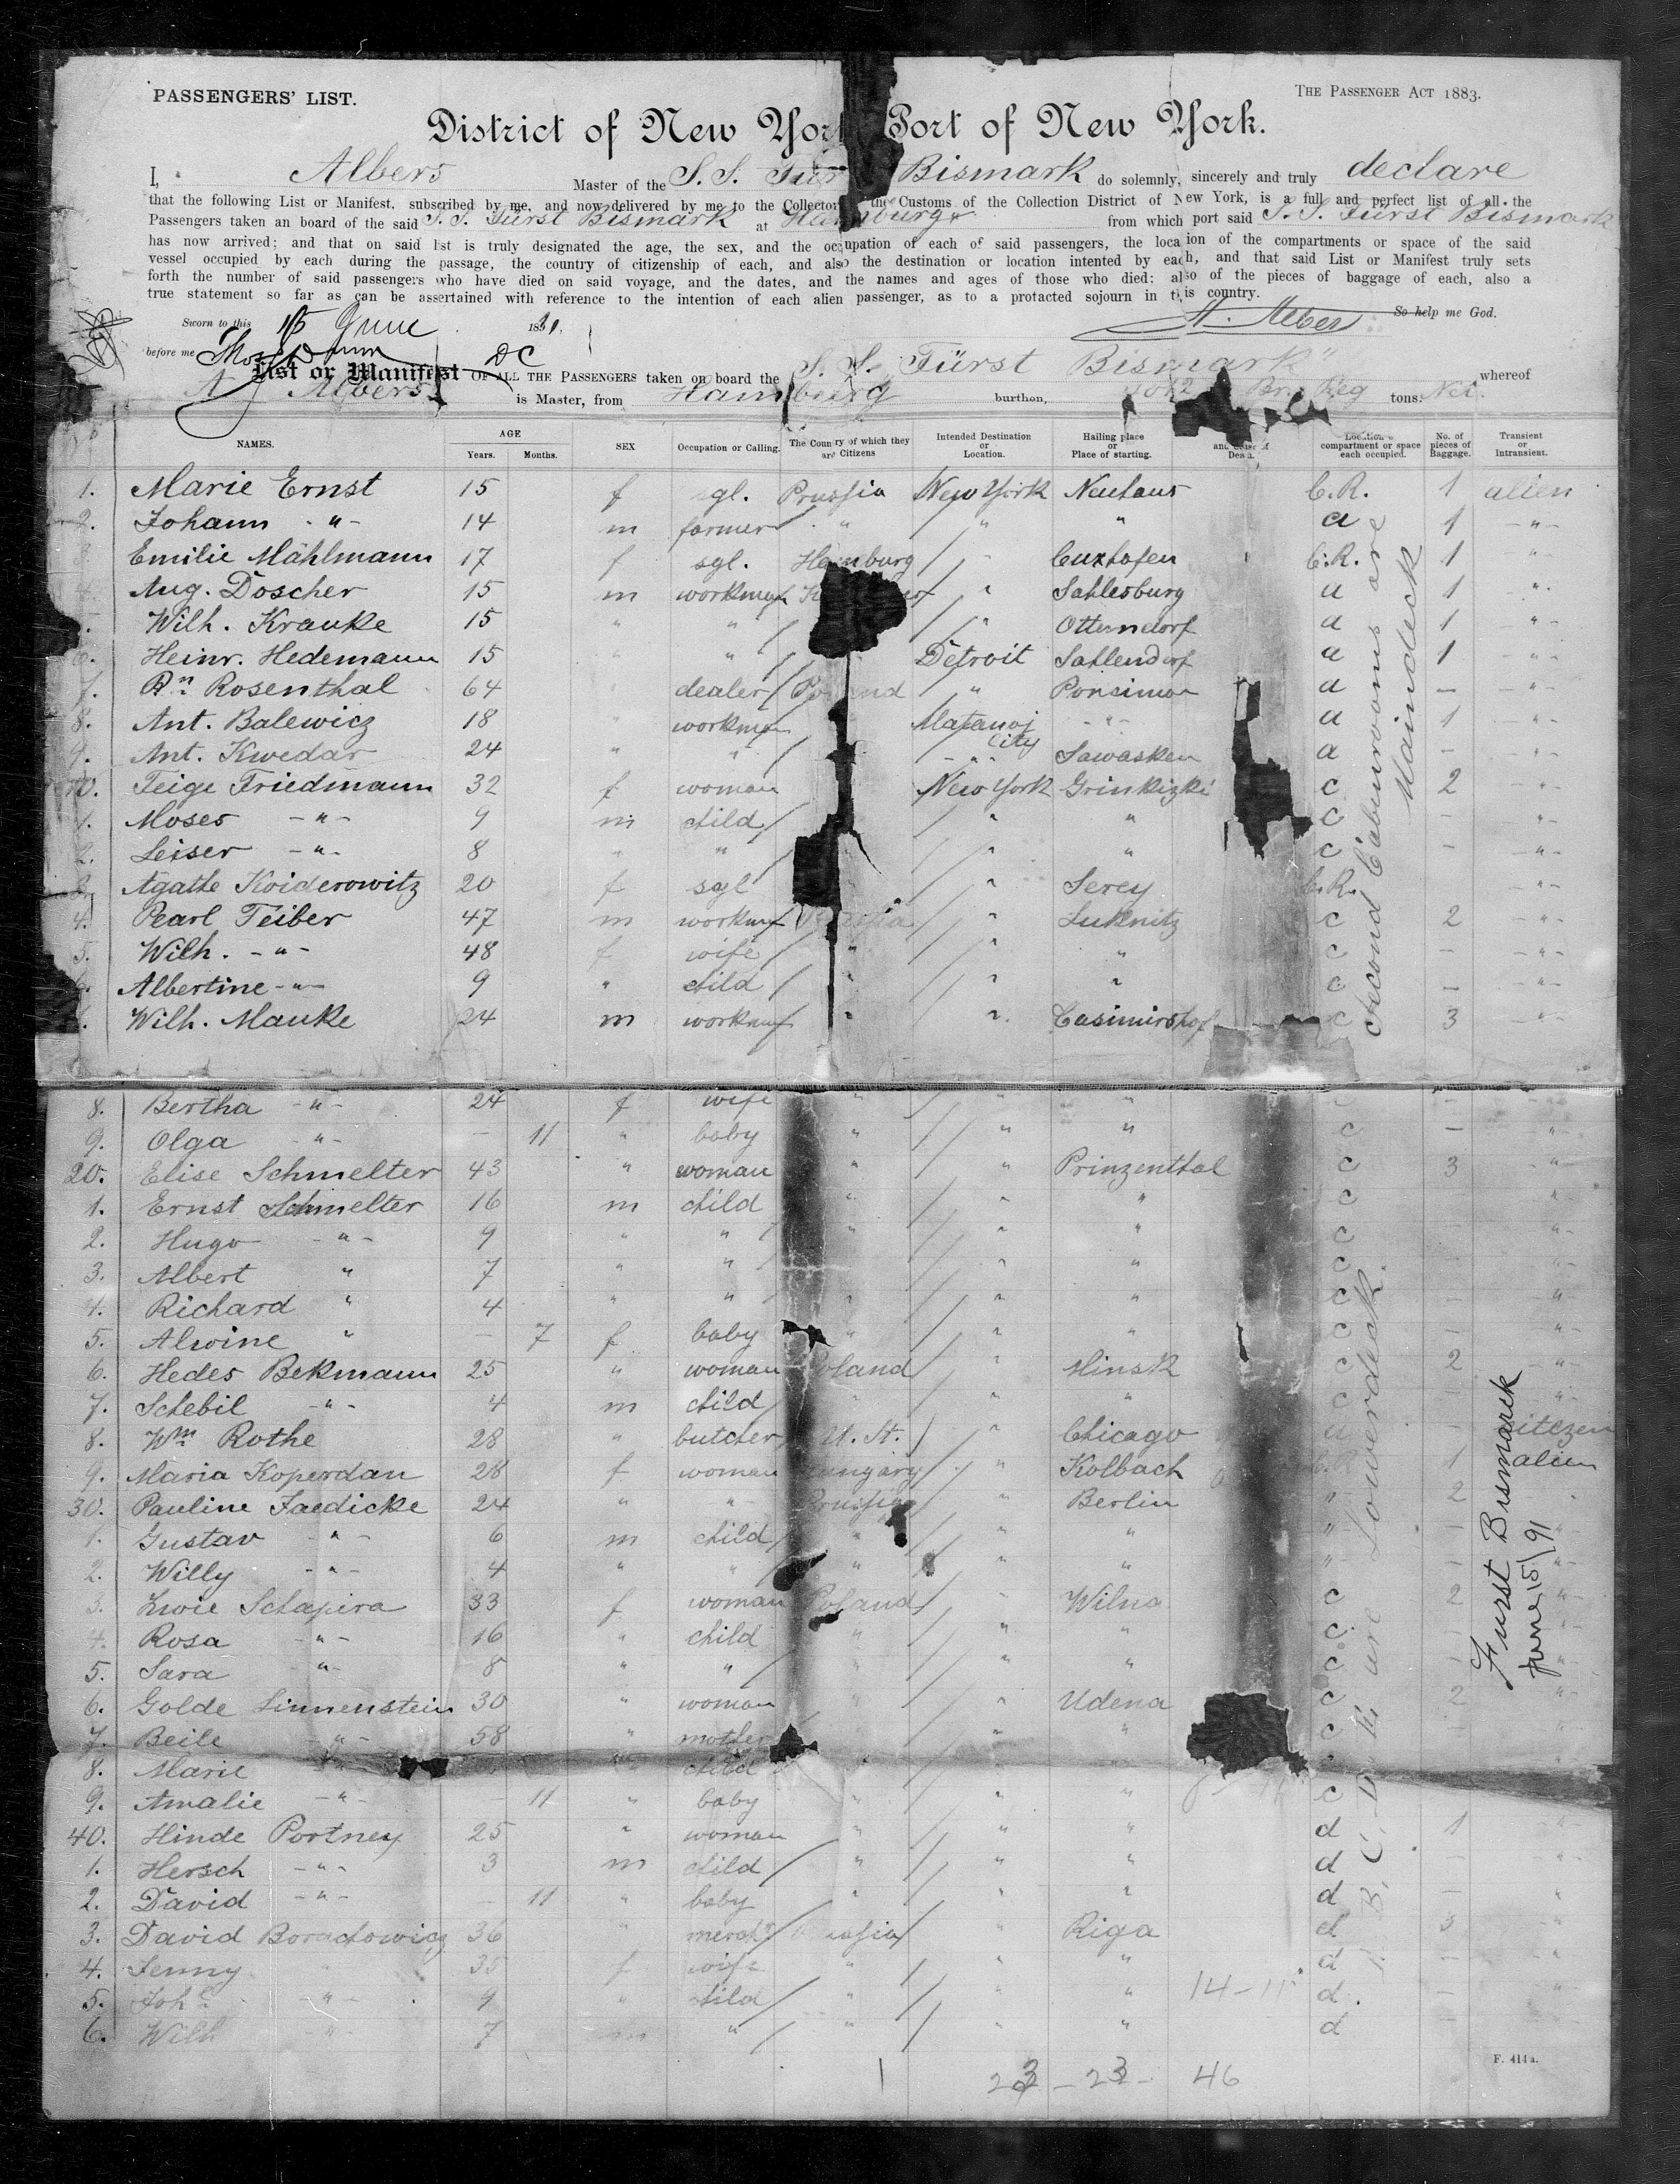 PASSENGERS' LIST.
THE PASSENGER ACT 1883.
District of New York Port of New York.
I, Albers Master of the S. S. Für Bismark do solemnly, sincerely and truly declare
that the following List or Manifest, subscribed by me, and now delivered by me to the Collector the Customs of the Collection District of New York, is a full and perfect list of all the
Passengers taken an board of the said S. S. Fürst Bismark at Hamburg from which port said S. S. Fürst Bismark
has now arrived; and that on said list is truly designated the age, the sex, and the occupation of each of said passengers, the location of the compartments or space of the said
vessel occupied by each during the passage, the country of citizenship of each, and also the destination or location intented by each, and that said List or Manifest truly sets
forth the number of said passengers who have died on said voyage, and the dates, and the names and ages of those who died: also of the pieces of baggage of each, also a
true statement so far as can be assertained with reference to the intention of each alien passenger, as to a protacted sojourn in this country.
Sworn to this 15 June 1891. A. Albers So help me God.
before me DC
List or Manifest OF ALL THE PASSENGERS taken on board the S. S. Fürst Bismark" whereof
A Albers is Master, from Hamburg burthon, Br. Reg tons. Net.
NAMES. AGE Years. Months. SEX Occupation or Calling. The Country of which they are Citizens Intended Destination or Location. Hailing place or Place of starting. Location compartment or space each occupied. No. of pieces of Baggage. Transient or Intransient.
1. Marie Ernst 15 f sgl. Prussia New York Neuhaus C.R. 1 alien
2. Johann -"- 14 m farmer " " " a 1 -"-
3. Emilie Mählmann 17 f sgl. Hamburg " Cuxhafen C.R. 1 "
4. Aug. Döscher 15 m workman " Sahlesburg a 1 "
5. Wilh. Krauke 15 " " " Otterndorf a 1 -"-
6. Heinr. Hedemann 15 " " Detroit Sahlendorf a 1 -"-
7. Rn Rosenthal 64 " dealer Poland " Ponsimon a — -"-
8. Ant. Balewicz 18 " workman Mahanoj City -"- a 1 -"-
9. Ant. Kwedar 24 " " -"- Sawasken a - "
10. Feige Friedmann 32 f woman New York Grinkizki c 2 -"-
1. Moses -"- 9 m child " " c - -"-
2. Leiser -"- 8 " " " " c - -"-
3. Agathe Koiderowitz 20 f sgl " Serey C.R. -"-
4. Pearl Teiber 47 m workman Russia " Luknitz c 2 -"-
5. Wilh. -"- 48 f wife " " " c — -"-
6. Albertine -"- 9 " child " " " c — -"-
7. Wilh. Manke 24 m workman " " Casimirshof c 3 -"-
8. Bertha -"- 24 f wife " " " c —
9. Olga -"- — 11 " baby " " " c — "
20. Elise Schmelter 43 " woman " " Prinzenthal c 3 "
1. Ernst Schmelter 16 m child " " " c "
2. Hugo -"- 9 " " " " " c "
3. Albert " 7 " " " " c "
4. Richard " 4 " " " " " c "
5. Alwine " — 7 f baby " " " c - "
6. Hedes Bekmann 25 " woman Poland " Minsk c 2 "
7. Schebil -"- 4 m child " " " c - "
8. Wm Rothe 28 " butcher U. St. " Chicago a - citezen
9. Maria Koperdan 28 f woman Hungary " Kolbach C.R. 1 alien
30. Pauline Jaedicke 24 " " Prussia " Berlin " 2
1. Gustav -"- 6 m child " " " " -
2. Willy -"- 4 " " " " " " -
3. Zwie Schapira 33 f woman Poland " Wilna c 2 "
4. Rosa -"- 16 " child " " " c
5. Sara -"- 8 " " " " c
6. Golde Linnenstein 30 " woman " " Udena c 2 "
7. Beile -"- 58 " mother " " c
8. Marie " child " "
9. Amalie -"- — 11 " baby " " " c
40. Hinde Portney 25 " woman " " " d 1
1. Hersch -"- 3 m child " " " d — "
2. David -"- — 11 " baby " " " d — "
3. David Borachowicz 36 " merch Russia " Riga d 3 "
4. Jenny " 35 f wife " " " d — "
5. Joh -"- 9 " child " " " 14-11 d. — "
6. Wilh -"- 7 m " " " " d
23 - 23 - 46
F. 414a.
Second Cabinrooms are Maindeck
Lowerdeck
Furst Bismarck
June 15/91